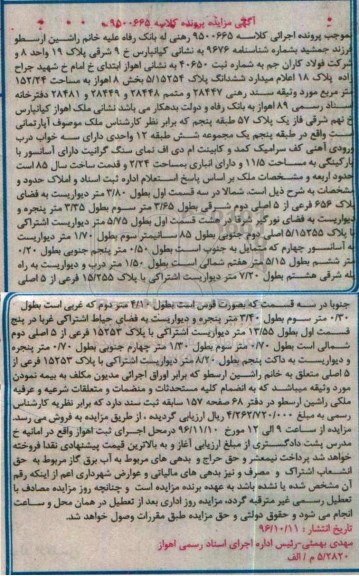 آگهی مزایده پرونده کلاسه ۹۵۰۰۶۶۵
بموجب پرونده اجرائی کلاسه ۹۵۰۰۶۶۵ رهنی له بانک رفاه علیه خانم راشین ارسطو
فرزند جمشید بشماره شناسنامه ۹۶۷۶ به نشانی کیانپارس خ ۹ شرقی پلاک ۱۹ واحد ۸ و
شرکت فولاد کاران جم به شماره ثبت ۴۰۶۵۰ به نشانی اهواز ابتدای خ امام خ شهید جراح
زاده پلاک ۱۸ اعلام میدارد ششدانگ پلاک ۵/۱۵۲۵۴ بخش ۸ اهواز به مساحت ۱۵۲/۲۴
متر مربع مورد وثیقه سند رهنی ۲۸۴۴۷ و متمم ۲۸۴۴۸ و ۲۸۴۴۹ و ۲۸۴۸۱ دفترخانه
اسناد رسمی ۸۹ اهواز به بانک رفاه و دولت بدهکار می باشد نشانی ملک اهواز کیانپارس
خ نهم شرقی فاز یک پلاک ۵۷ طبقه پنجم که برابر نظر کارشناس ملک موصوف آپارتمانی
است واقع در طبقه پنجم یک مجموعه شش طبقه ۱۲ واحدی دارای سه خواب درب
ورودی آهنی کف سرامیک کمد و کابینت ام دی اف نمای سنگ گرانیت دارای آسانسور با
پارکینگی به مساحت ۱۱/۵ و دارای انباری بمساحت ۲/۲۴ و قدمت ساخت سال ۸۵ است
حدود اربعه و مشخصات ملک بر اساس پاسخ استعلام اداره ثبت اسناد و املاک حدود و
مشخصات به شرح ذیل است: شمالا در سه قسمت اول بطول ۳/۸۰ متر دیواریست به فضای
پلاک ۶۵۶ فرعی از ۵ اصلی دوم شرقی بطول ۳/۶۵ متر سوم بطول ۳/۳۵ متر پنجره و
دیواریست به فضای نورگیر شرقا در هشت قسمت اول بطول ۵/۷۵ متر دیواریست اشتراکی
با پلاک ۵/۱۵۲۵۵ اصلی دوم جنوبی بطول ۸۵ سانتیمتر سوم بطول ۱/۷۰ متر دیواریست
به آسانسور چهارم که متمایل به جنوب است بطول ۰/۵۰ متر پنجم جنوبی بطول ۰/۲۰
متر ششم بطول ۵/۱۵ متر هفتم شمالی است بطول ۱/۵۰ متر درب و دیواریست به راه
پله شرقی هشتم بطول ۷/۲۰ متر دیواریست اشتراکی با پلاک ۱۵/۲۵۵ فرعی از ۵ اصلی
جنوبا در سه قسمت که بصورت قوس است بطول ۴/۱۰ متر دوم که غربی است بطول
۰/۳۰ متر سوم بطول ۳/۴۰ متر پنجره و دیواریست به فضای حیاط اشتراکی غربا در پنج
قسمت اول بطول ۱۳/۵۵ متر دیواریست اشتراکی با پلاک ۱۵۲۵۳ فرعی از ۵ اصلی دوم
شمالی است بطول ۰/۷۰ متر سوم بطول ۱/۳۰ متر چهارم جنوبی بطول ۰/۷۰ متر پنجره
و دیواریست به داکت پنجم بطول ۸/۲۰ متر دیواریست اشتراکی با پلاک ۱۵۲۵۳ فرعی از
۵ اصلی متعلق به خانم راشین ارسطو که برابر اوراق اجرائی مدیون مکلف به بیمه نمودن
مورد وثیقه میباشد که به انضمام کلیه مستحدثات و منضمات و متعلقات شرعیه و عرفیه
ملکی راشین ارسطو در دفتر ۶۸ صفحه ۱۵۷ سابقه ثبت سند دارد که برابر نظریه کارشناس
رسمی به مبلغ ۴/۲۶۲/۷۲۰/۰۰۰ ریال ارزیابی گردیده ، از طریق مزایده به فروش می رسد.
مزایده از ساعت ۹ الی ۱۲ مورخ ۹۶/۱۱/۱۰ درمحل اجرای ثبت اهواز واقع در امانیه خ
مدرس پشت دادگستری از مبلغ ارزیابی آغاز و به بالاترین قیمت پیشنهادی نقدا فروخته
خواهد شد پرداخت نیمعشر و حق حراج و بدهی های مربوطه به آب برق گاز مربوط به حق
انشعاب اشتراک و مصرف و نیز بدهی های مالیاتی و عوارض شهرداری اعم از اینکه رقم
آن مشخص شده یا نشده باشد به عهده برنده مزایده است و چنانچه روز مزایده مصادف با
تعطیل رسمی غیر مترقبه گردد، مزایده روز اداری بعد از تعطیل در همان محل و ساعت
انجام می شود و حقوق دولتی و حق مزایده طبق مقررات وصول خواهد شد.
تاریخ انتشار : ۹۶/۱۰/۱۱
مهدی بهمئی-رئیس اداره اجرای اسناد رسمی اهواز
۵/۲۸۲۰ م / الف